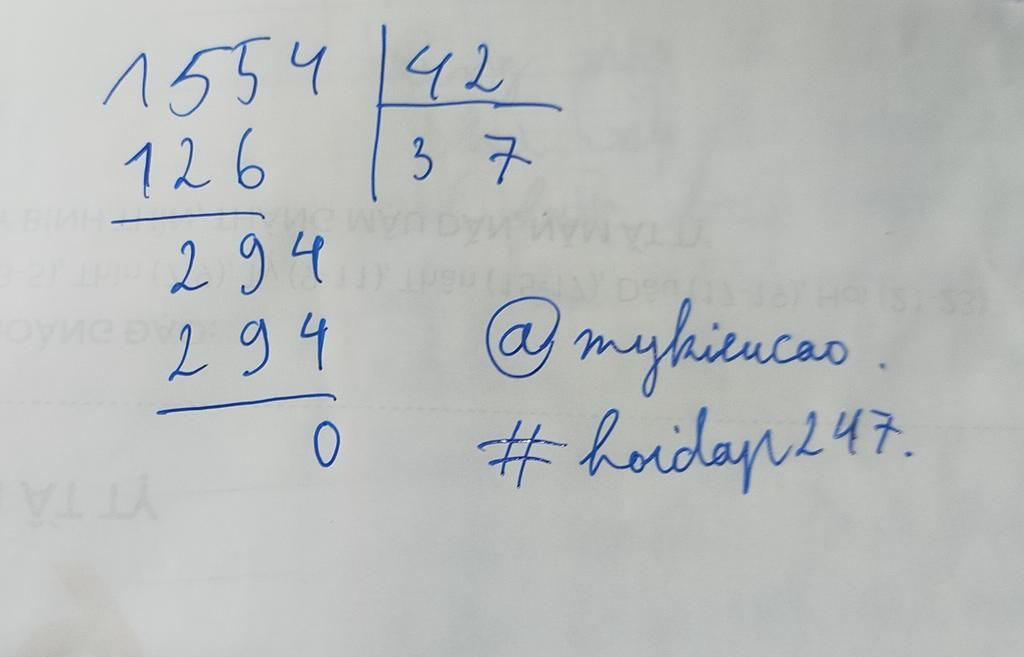 1554 | 42
126 | 37
294
294
0
@mykieucao.
#hoidap247.